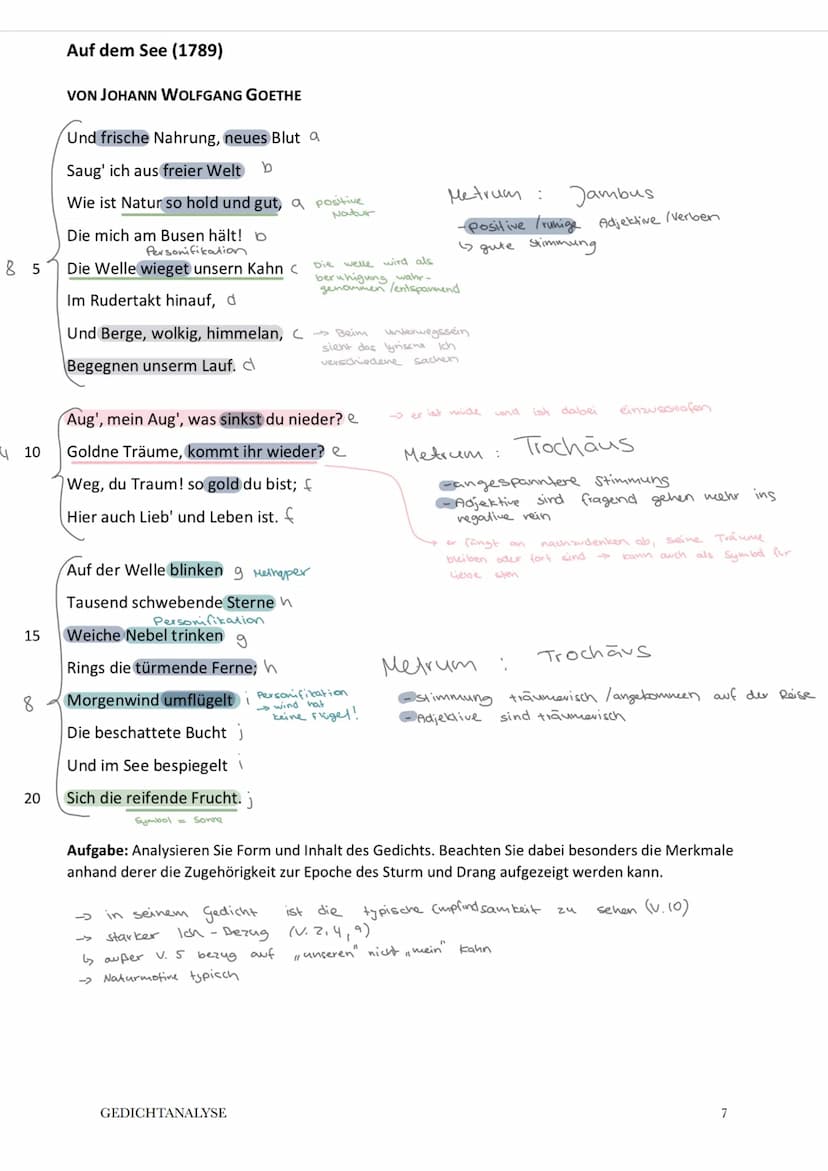 Auf dem See (1789)
VON JOHANN WOLFGANG GOETHE
Und frische Nahrung, neues Blut a
Saug' ich aus freier Welt b
Wie ist Natur so hold und gut, a positive Natur
Metrum : Jambus
Die mich am Busen hält! b
- positive / ruhige Adjektive / Verben
↳ gute Stimmung
Personifikation
8 5 Die Welle wieget unsern Kahn c Die Welle wird als
beruhigung wahr-
genommen / entspannend
Im Rudertakt hinauf, d
Und Berge, wolkig, himmelan, c → Beim unterwegssein
sieht das lyrische Ich
verschiedene sachen
Begegnen unserm Lauf. d
Aug', mein Aug', was sinkst du nieder? e → er ist müde und ist dabei einzuschlafen
4 10 Goldne Träume, kommt ihr wieder? e
Metrum : Trochäus
Weg, du Traum! so gold du bist; f
- angespanntere Stimmung
Hier auch Lieb' und Leben ist. f
- Adjektive sind fragend gehen mehr ins
negative rein
→ er fängt an nachzudenken ob, seine Träume
bleiben oder fort sind → kann auch als Symbol für
liebe sten
Auf der Welle blinken g Methapper
Tausend schwebende Sterne h
Personifikation
15 Weiche Nebel trinken g
Rings die türmende Ferne; h
Metrum : Trochäus
8 Morgenwind umflügelt i Personifikation
→ wind hat
keine Flügel!
- Stimmung träumerisch / angekommen auf der Reise
- Adjektive sind träumerisch
Die beschattete Bucht j
Und im See bespiegelt i
20 Sich die reifende Frucht. j
Symbol = Sonne
Aufgabe: Analysieren Sie Form und Inhalt des Gedichts. Beachten Sie dabei besonders die Merkmale
anhand derer die Zugehörigkeit zur Epoche des Sturm und Drang aufgezeigt werden kann.
→ in seinem Gedicht ist die typische Empfindsamkeit zu sehen (V. 10)
→ starker Ich - Bezug (V. 2, 4, 9)
↳ außer V. 5 bezug auf „unseren" nicht „mein" Kahn
→ Naturmotive typisch
GEDICHTANALYSE
7